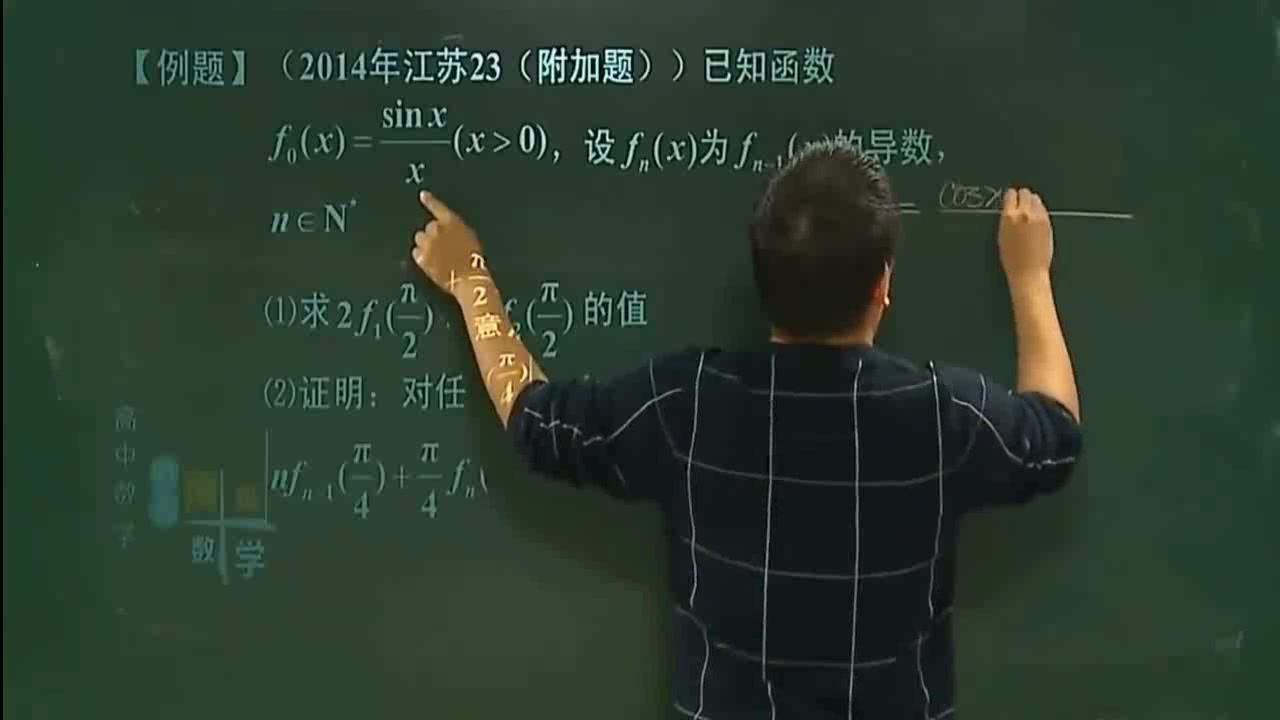 【例题】（2014年江苏23（附加题））已知函数
f₀(x)=sin x/x(x>0)，设fₙ(x)为fₙ₋₁(x)的导数，
= cosx
n∈N*
(1)求2f₁(π/2)+π/2 f₂(π/2)的值
(2)证明：对任意
nfₙ₋₁(π/4)+π/4 fₙ(π/4)
高中数学
数学